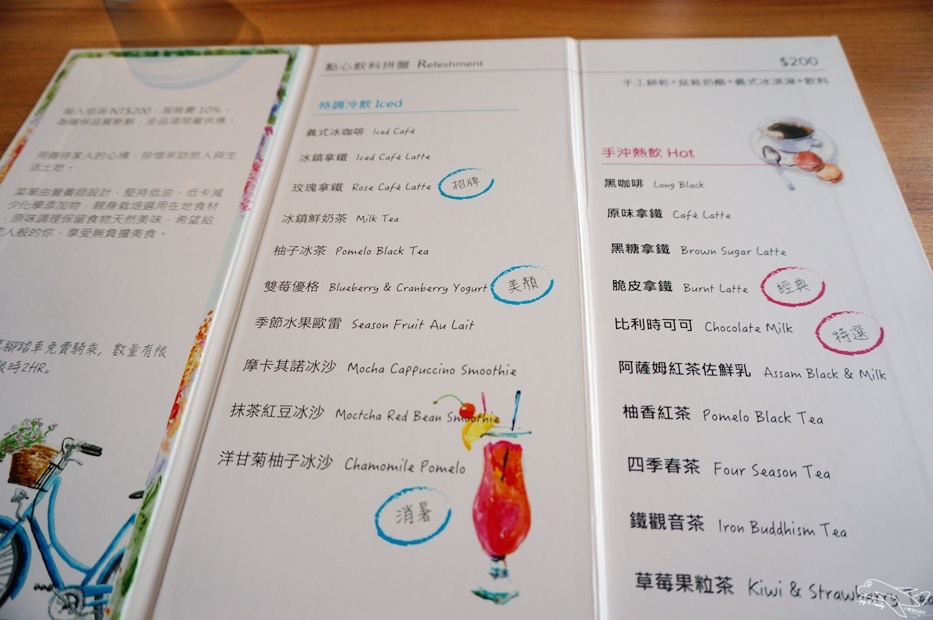 低消 NT$200，服務費 10%、
為確保品質新鮮，全品項限量供應。
用善待家人的心情，珍惜來訪旅人與生
活土地。
菜單由營養師設計，堅持低油、低卡減
少化學添加物，親身栽培選用在地食材
，原味調理保留食物天然美味，希望給
家人般的你，享受無負擔美食。
腳踏車免費騎乘，數量有限
限時2HR。
點心飲料拼盤 Refeshment
特調冷飲 Iced
義式冰咖啡 Iced Café
冰鎮拿鐵 Iced Café Latte
玫瑰拿鐵 Rose Café Latte 招牌
冰鎮鮮奶茶 Milk Tea
柚子冰茶 Pomelo Black Tea
雙莓優格 Blueberry & Cranberry Yogurt 美顏
季節水果歐雷 Season Fruit Au Lait
摩卡其諾冰沙 Mocha Cappuccino Smoothie
抹茶紅豆冰沙 Moctcha Red Bean Smoothie
洋甘菊柚子冰沙 Chamomile Pomelo
消暑
$200
手工餅乾+盆栽奶酪+義式冰淇淋+飲料
手沖熱飲 Hot
黑咖啡 Long Black
原味拿鐵 Café Latte
黑糖拿鐵 Brown Sugar Latte
脆皮拿鐵 Burnt Latte 經典
比利時可可 Chocolate Milk 特選
阿薩姆紅茶佐鮮乳 Assam Black & Milk
柚香紅茶 Pomelo Black Tea
四季春茶 Four Season Tea
鐵觀音茶 Iron Buddhism Tea
草莓果粒茶 Kiwi & Strawberry Tea